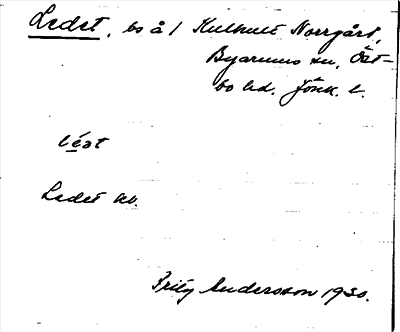 Ledet, bs å 1 Kulhult Norrgård,
Byarums sn, Öst-
bo hd. Jönk. l.
léat
Ledet kb.
Fritz Andersson 1930.